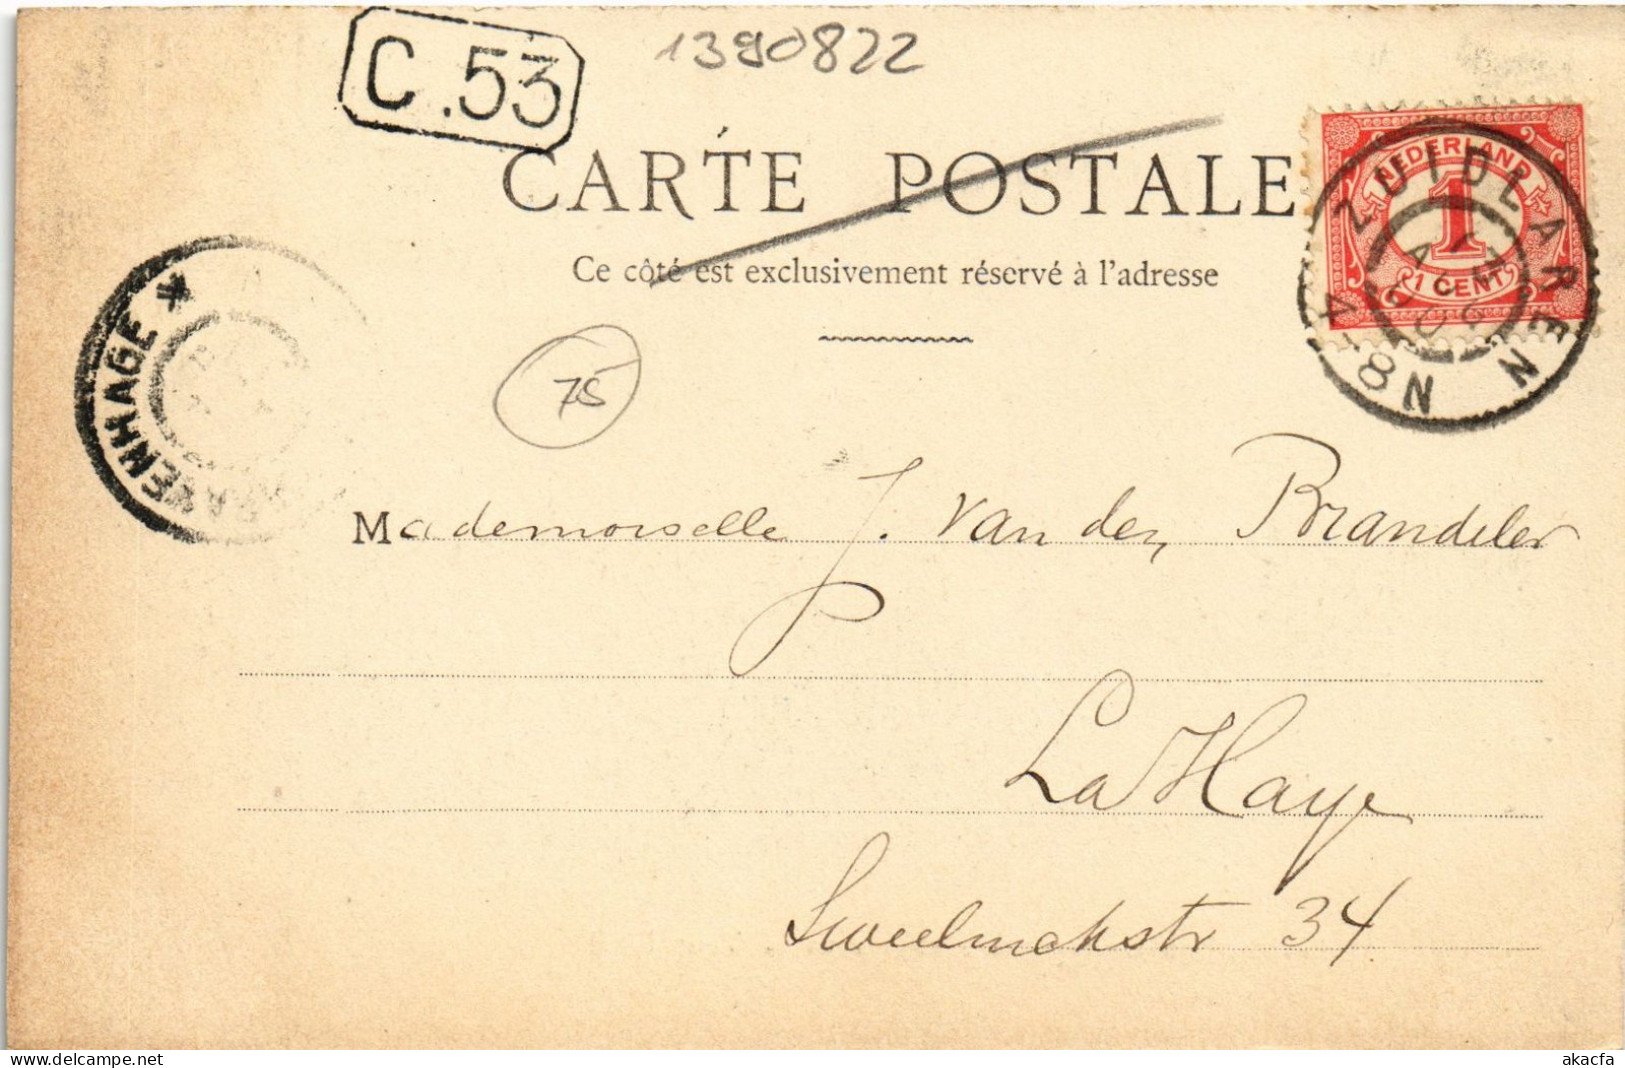 C.53
1390822
CARTE POSTALE
Ce côté est exclusivement réservé à l'adresse
NEDERLAND
1
1 CENT
ZUIDLAREN
4-8N
AUG
75
Mademoiselle J. van den Brandeler
La Haye
Sweelinckstr 34
akacfa